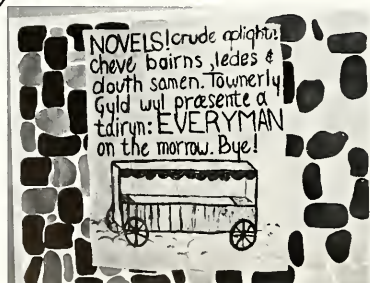 NOVELS! crude aplight!
cheve bairns, ledes &
douth samen. Townerly
Gyld wyl præsente a
tairyn: EVERYMAN
on the morrow. Bye!